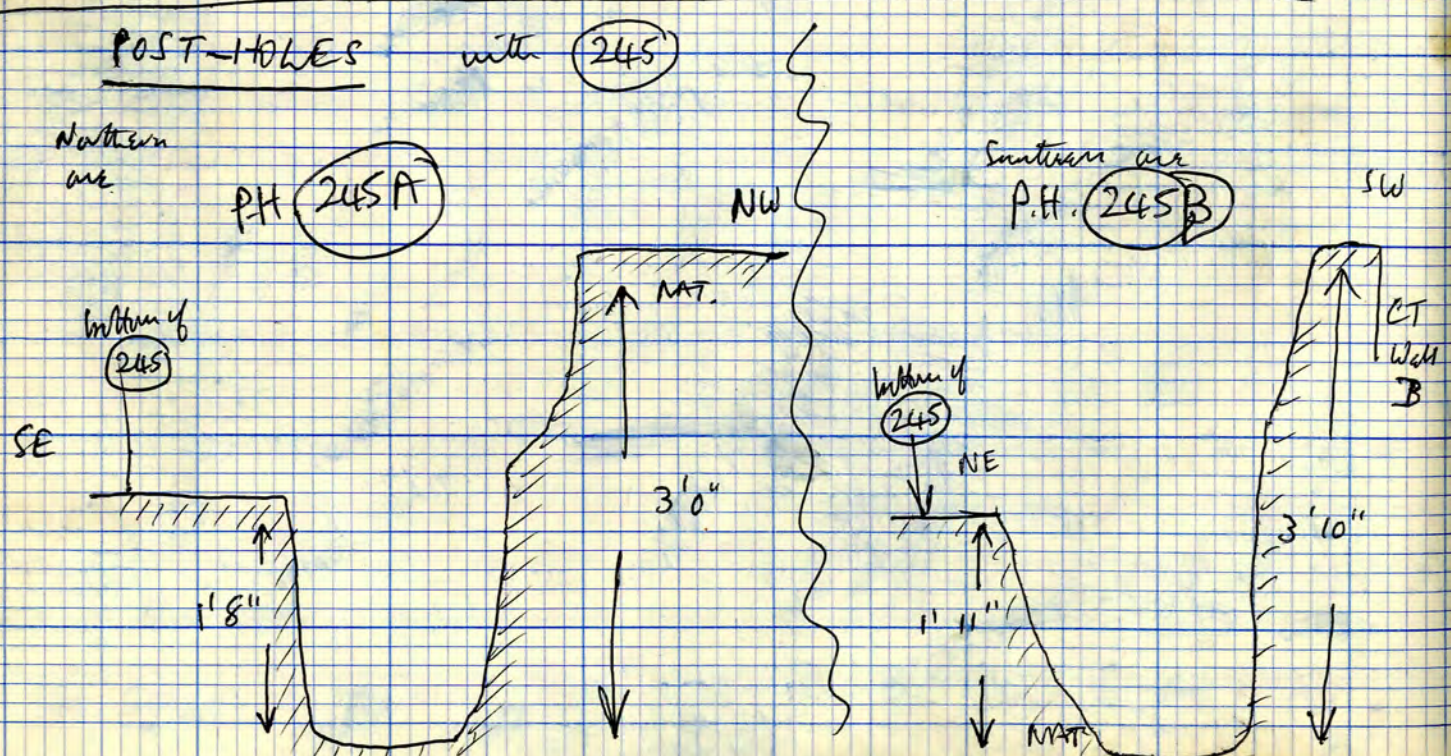 POST-HOLES with 245
Northern
one
P.H. 245A
NW
NAT.
bottom of
245
SE
3'0"
1'8"
Southern one
P.H. 245B
SW
CT
Wall
B
bottom of
245
NE
3'10"
1'11"
NAT.